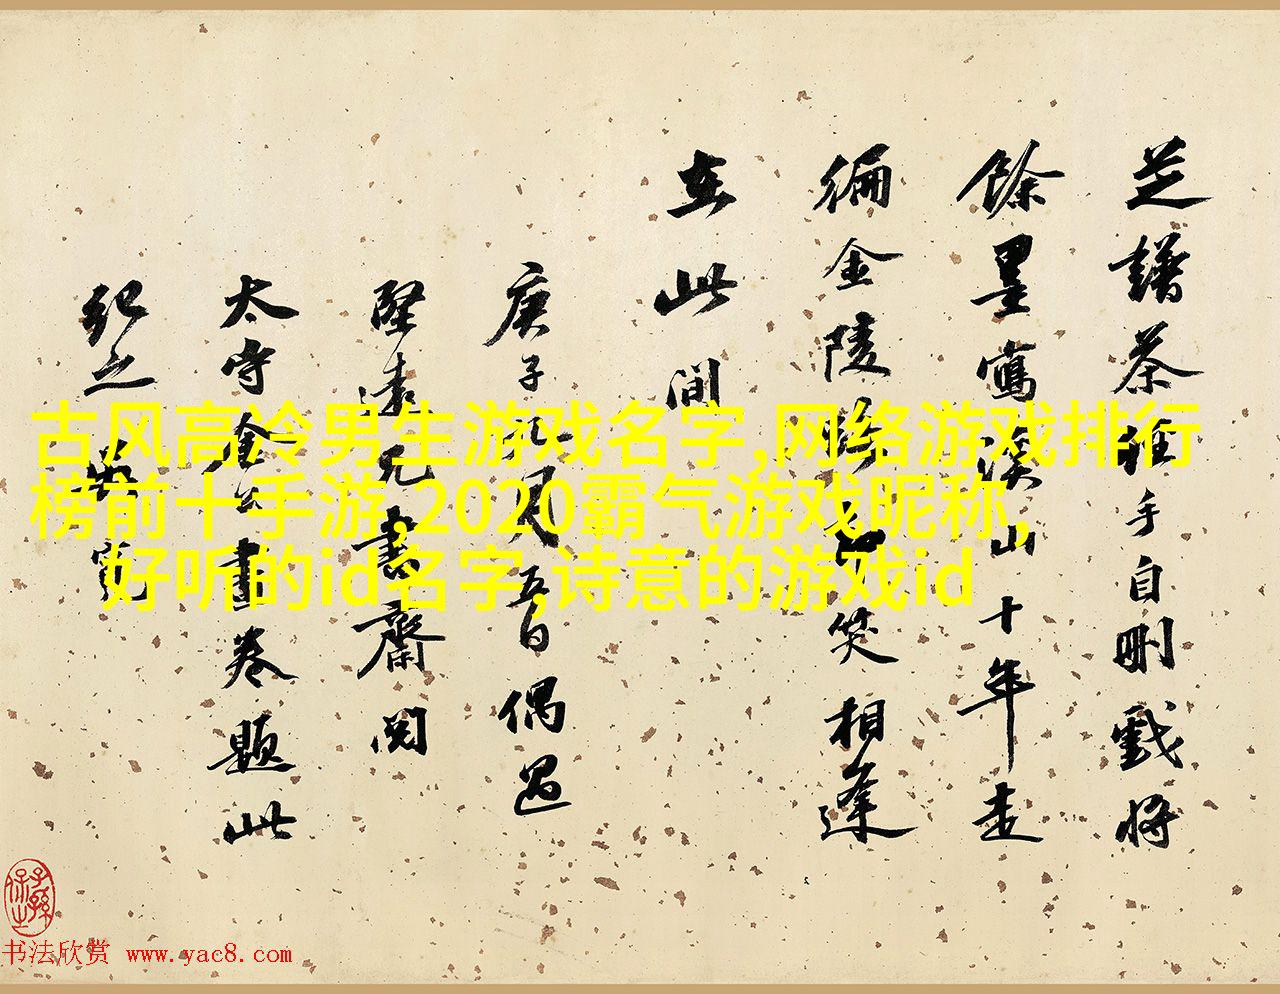 古风高冷男生游戏名字,网络游戏排行
榜前十手游,2020霸气游戏昵称,
好听的id名字,诗意的游戏id
芝譜茶手自刪戲將
餘墨寫溪山十年走
徧金陵一笑相逢
在此間
庚子月五日偶過
堅遠兄書齋閱
太守金公畫卷題此
紀之
书法欣赏 www.yac8.com